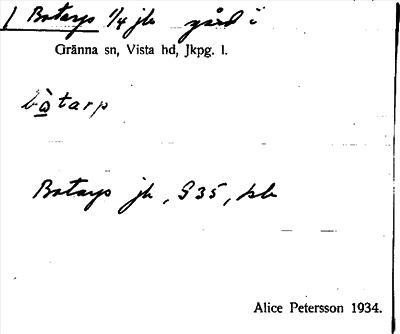 Botarp 1/4 jb gård i
Gränna sn, Vista hd, Jkpg. l.
bòtarp
Botarp jb, G 35, kb
Alice Petersson 1934.